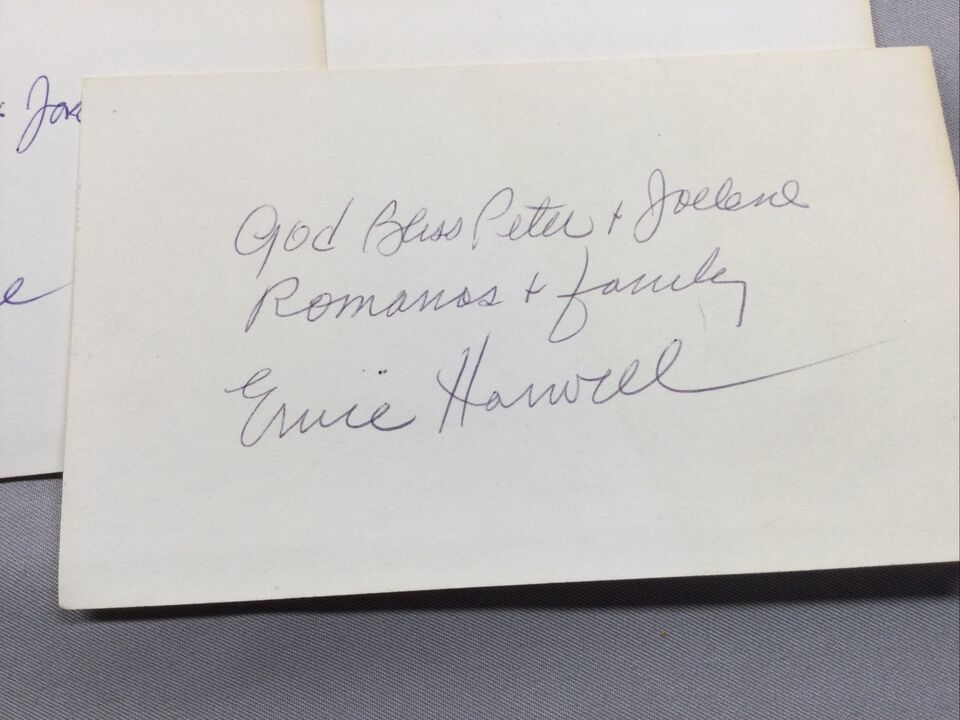 God Bless Peter + Joelene
Romanos + family
Ernie Harwell